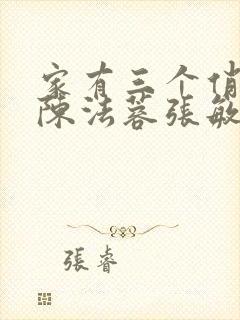 家有三个俏
陳法蓉張敏
張睿